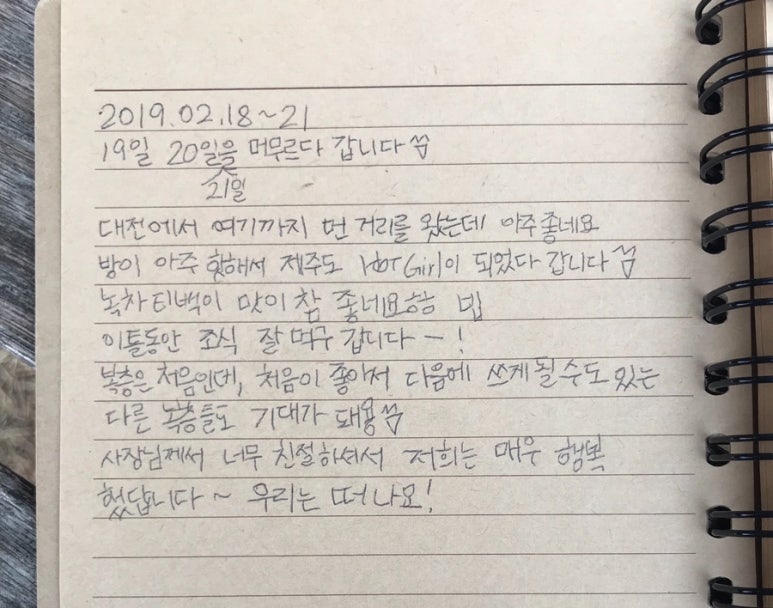 2019.02.18~21
19일 20일을 머무르다 갑니다
21일
대전에서 여기까지 먼 거리를 왔는데 아주좋네요
방이 아주 핫해서 제주도 HOT Girl이 되었다 갑니다
녹차티백이 맛이 참 좋네요
이틀동안 조식 잘 먹구 갑니다 ~!
복층은 처음인데, 처음이 좋아서 다음에 쓰게될수도 있는
다른 복층들도 기대가 돼용
사장님께서 너무 친절하셔서 저희는 매우 행복
했답니다 ~ 우리는 떠나요!